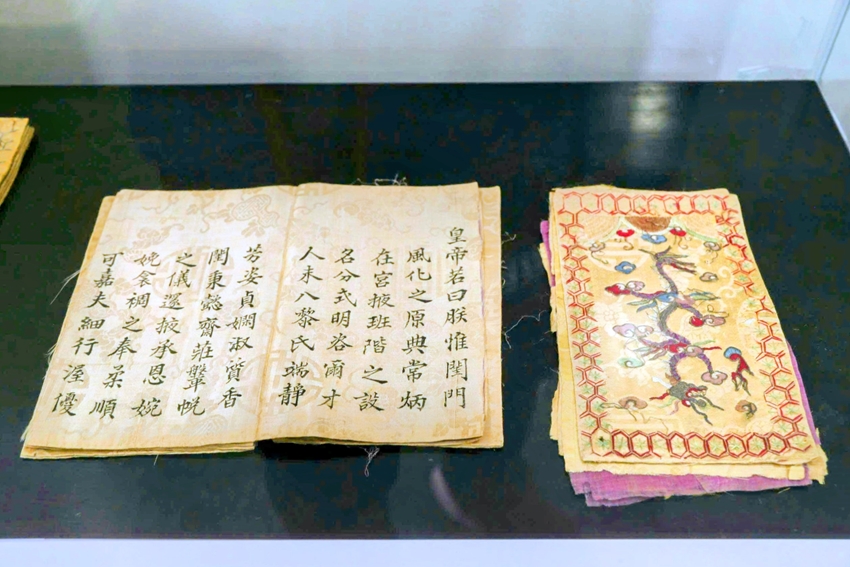 皇帝若曰朕惟閨門
風化之原典常炳
在宮掖班階之設
名分式明咨爾才
人未八黎氏端靜
芳姿貞嫻淑質香
閨秉懿齋莊鞶帨
之儀選掖承恩婉
娩衾裯之奉柔順
可嘉夫細行渥優